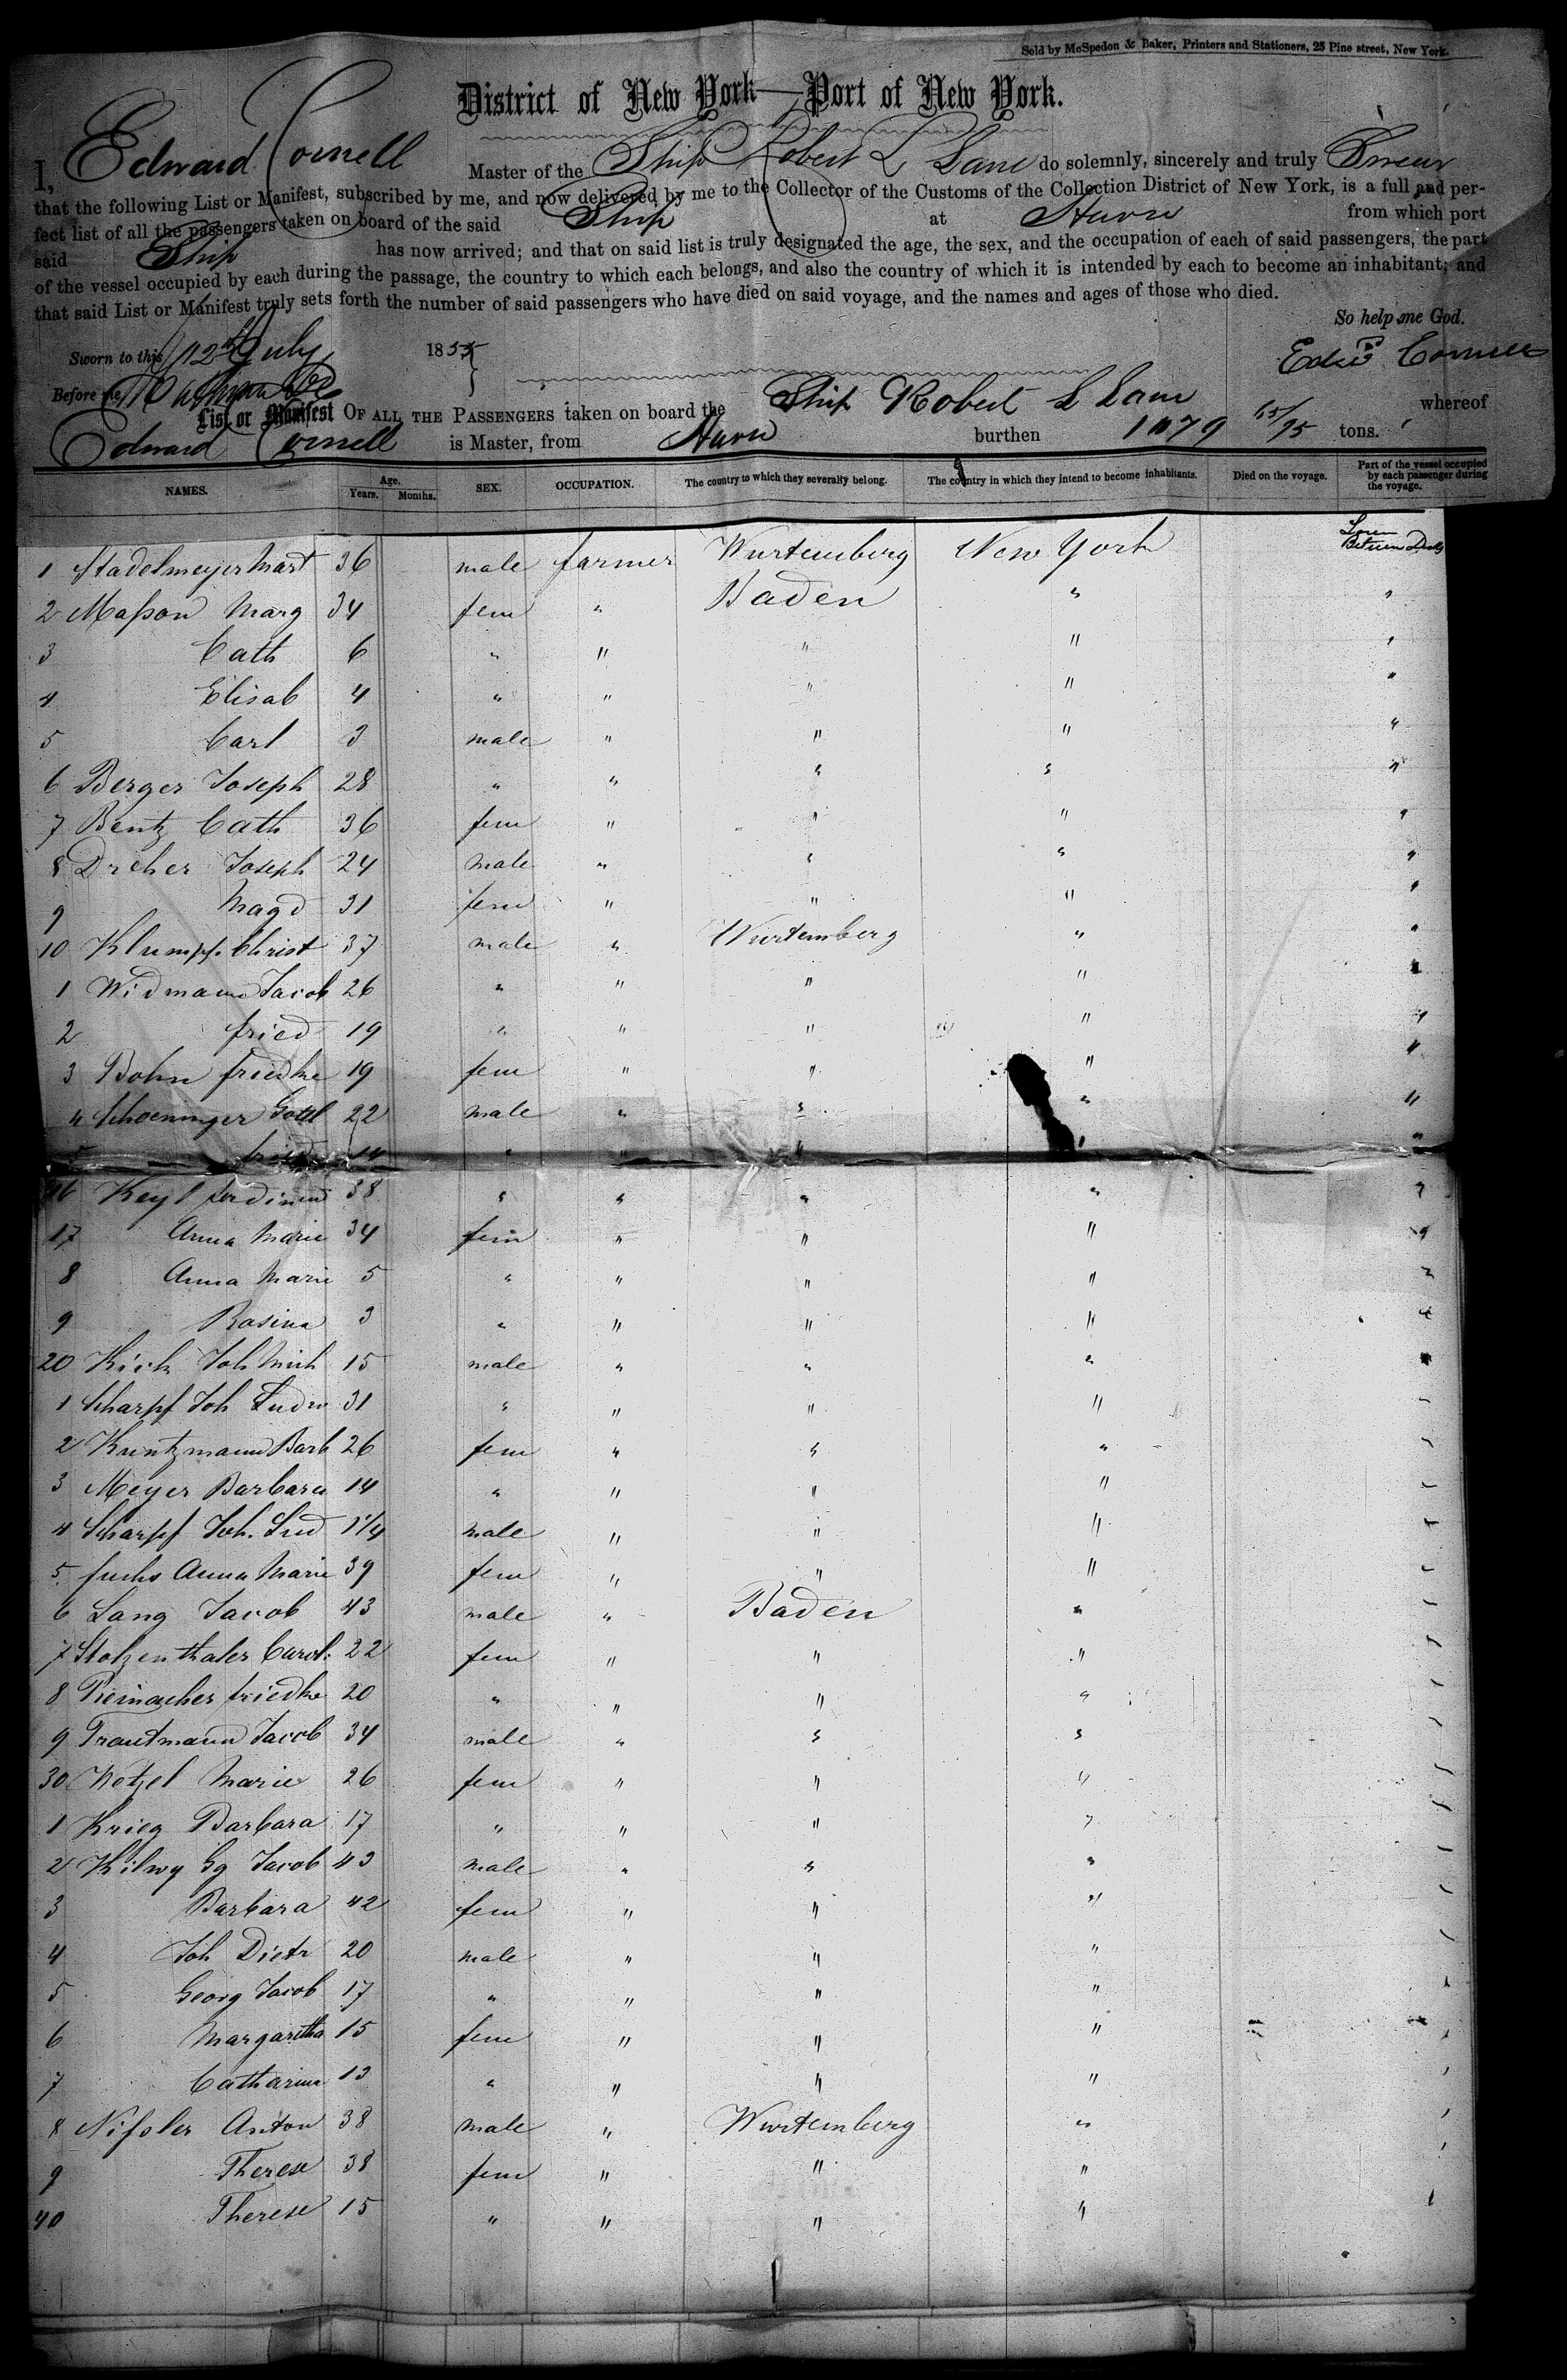 Sold by McSpedon & Baker, Printers and Stationers, 25 Pine street, New York.
District of New York—Port of New York.
I, Edward Cornell Master of the Ship Robert L Lane do solemnly, sincerely and truly Swear
that the following List or Manifest, subscribed by me, and now delivered by me to the Collector of the Customs of the Collection District of New York, is a full and per-
fect list of all the passengers taken on board of the said Ship at Havre from which port
said Ship has now arrived; and that on said list is truly designated the age, the sex, and the occupation of each of said passengers, the part
of the vessel occupied by each during the passage, the country to which each belongs, and also the country of which it is intended by each to become an inhabitant; and
that said List or Manifest truly sets forth the number of said passengers who have died on said voyage, and the names and ages of those who died.
So help me God.
Sworn to this 12th July 1855
Edwd Cornell
Before me
List or Manifest OF ALL THE PASSENGERS taken on board the Ship Robert L Lane whereof
Edward Cornell is Master, from Havre burthen 1079 65/95 tons.
NAMES. Age. Years. Months. SEX. OCCUPATION. The country to which they severally belong. The country in which they intend to become inhabitants. Died on the voyage. Part of the vessel occupied by each passenger during the voyage.
1 Stadelmeyer Mart 36 male farmer Wurtemberg New York Between Decks
2 Masson Marg 34 fem " Baden " "
3 Cath 6 " " " " "
4 Elisab 4 " " " " "
5 Carl 3 male " " " "
6 Berger Joseph 28 " " " " "
7 Bentz Cath 36 fem " " " "
8 Dreher Joseph 24 male " " " "
9 Magd 31 fem " " " "
10 Klumpp Christ 37 male " Wurtemberg " "
1 Widmann Jacob 26 " " " " "
2 fried 19 " " " " "
3 Bohn friedke 19 fem " " " "
4 Schoeninger Gottl 22 male " " " "
5 fried " " " " "
16 Keyl ferdinand 38 " " " " "
17 Anna Marie 34 fem " " " "
8 Anna Marie 5 " " " " "
9 Rosina 3 " " " " "
20 Kick Joh Mich 15 male " " " "
1 Scharpf Joh Ludw 31 " " " " "
2 Kuntzmann Barb 26 fem " " " "
3 Meyer Barbara 14 " " " " "
4 Scharpf Joh. Lud 1 1/4 male " " " "
5 fuchs Anna Marie 39 fem " " " "
6 Lang Jacob 43 male " Baden " "
7 Stolzenthaler Carol. 22 fem " " " "
8 friedke 20 " " " " "
9 Trautmann Jacob 34 male " " " "
30 Wetzel Marie 26 fem " " " "
1 Krieg Barbara 17 " " " " "
2 Kilwy Gg Jacob 43 male " " " "
3 Barbara 42 fem " " " "
4 Joh Dietr 20 male " " " "
5 Georg Jacob 17 " " " " "
6 Margaretha 15 fem " " " "
7 Catharina 13 " " " " "
8 Nissler Anton 38 male " Wurtemberg " "
9 Therese 38 fem " " " "
40 Therese 15 " " " " "